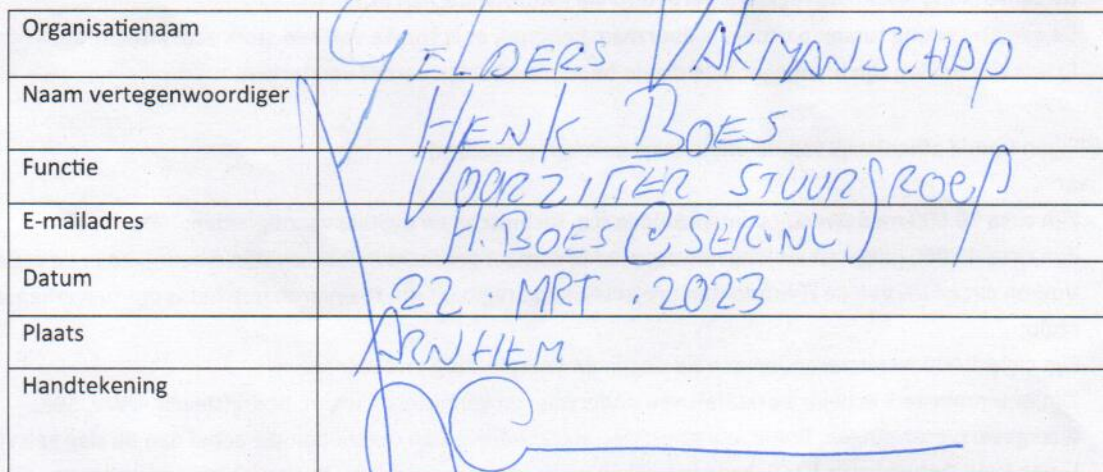 Organisatienaam GELDERS VAKMANSCHAP
Naam vertegenwoordiger HENK BOES
Functie VOORZITTER STUURGROEP
E-mailadres H.BOES@SER.NL
Datum 22 MRT. 2023
Plaats ARNHEM
Handtekening